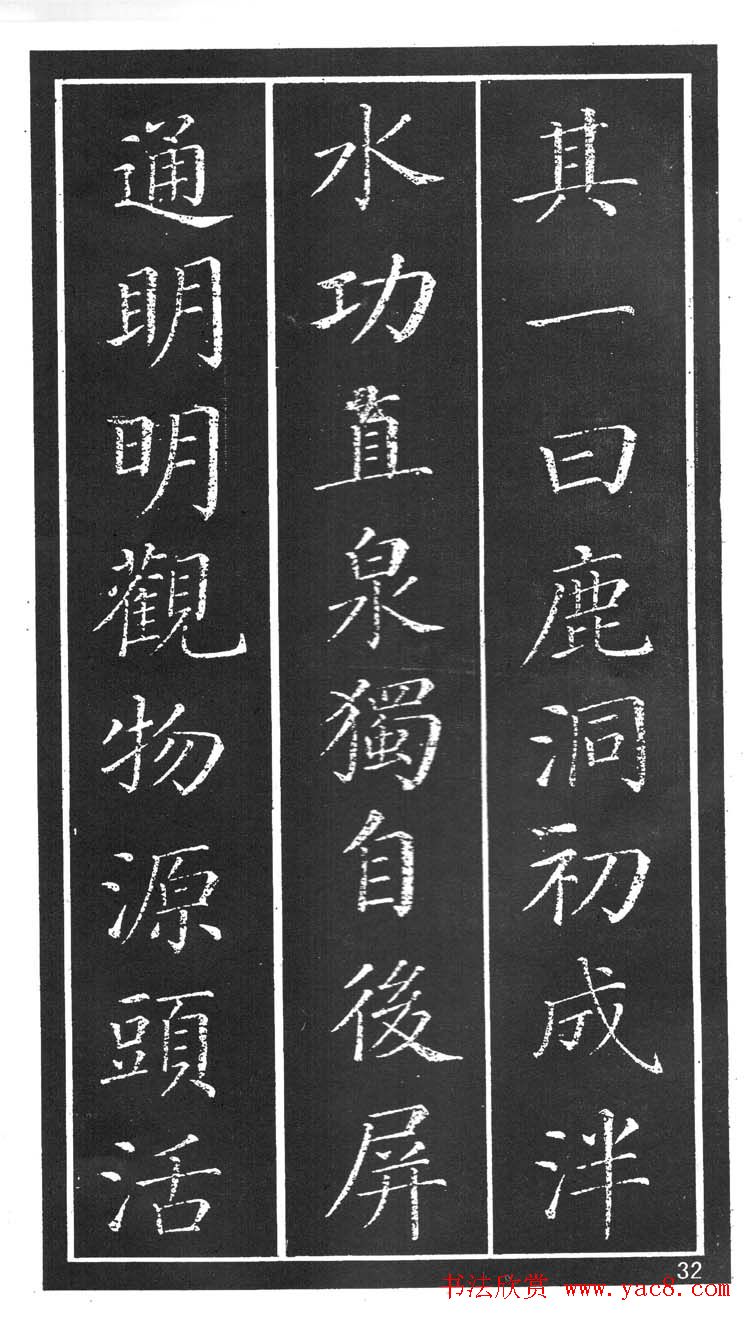 其一曰鹿洞初成泮
水功直泉獨自後屏
通明明觀物源頭活
32
书法欣赏 www.yac8.com